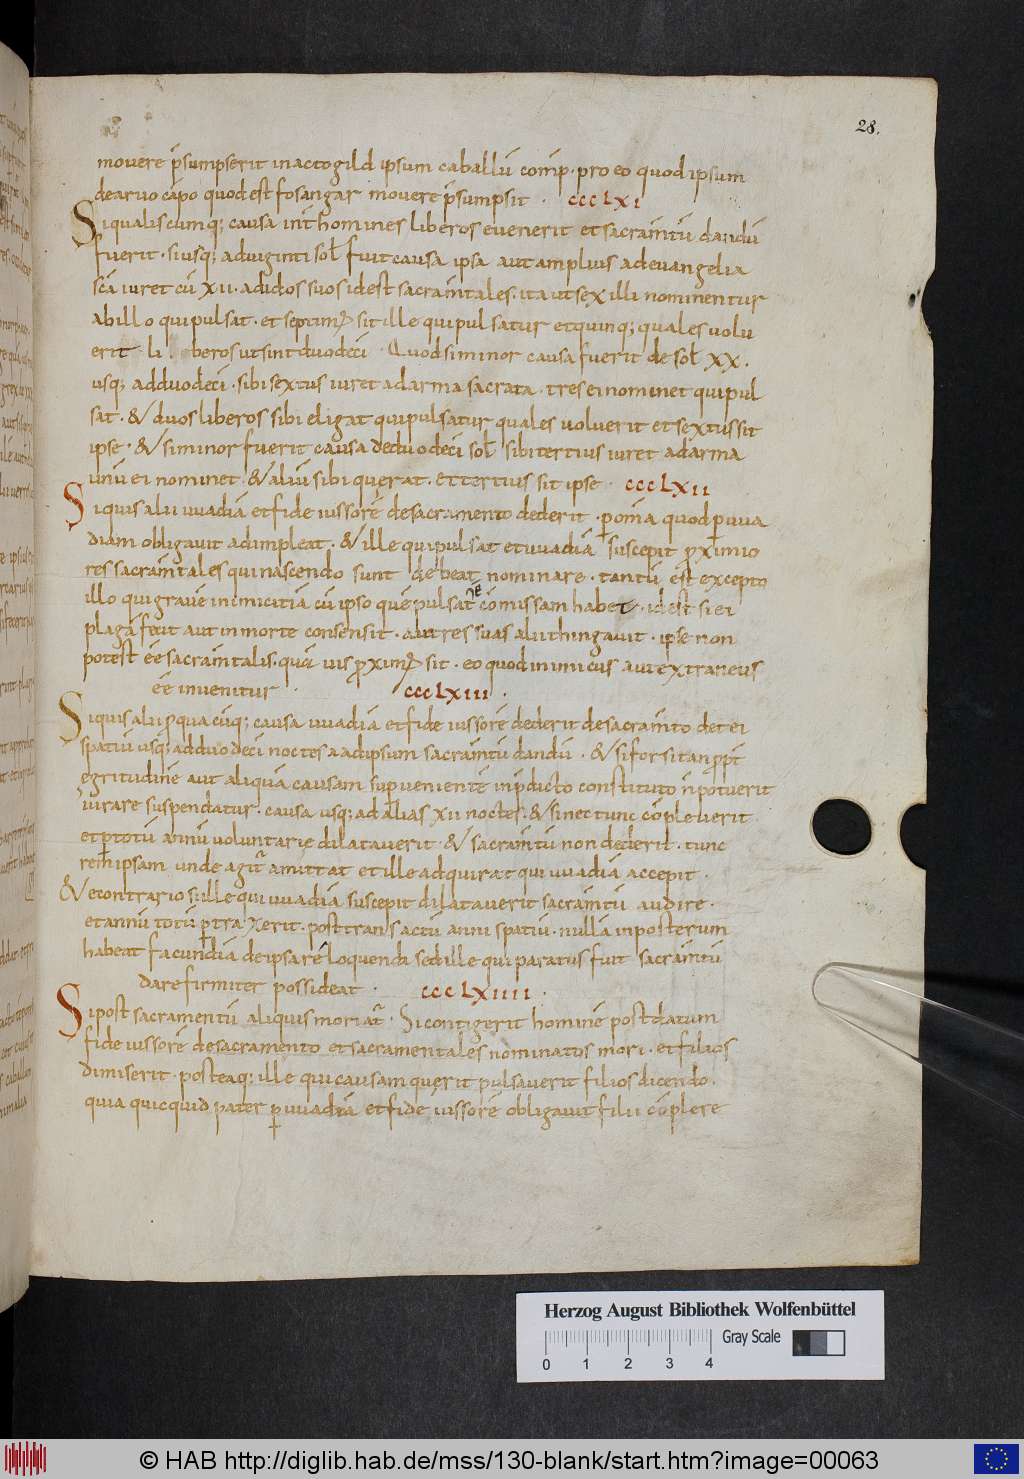 28.
movere p̄sumpserit inactogild ipsum caballū comp̄. pro eo quod ipsum
dearvo capo quod est fosangar movere p̄sumpsit . cccLxi
Si qualiscumq; causa int̄ homines liberos evenerit et sacram̄tū dandū
fuerit . si usq; ad viginti sol̄ fuit causa ipsa aut amplius ad evangelia
sc̄a iuret cū xii . ad idos suos id est sacram̄tales . ita ut sex illi nominentur
ab illo qui pulsat . et septim; sit ille qui pulsatur et quinq; quales volu
erit li beros ut sint duodeci . Quod si minor causa fuerit de sol̄ xx .
usq; ad duodeci . sibi sextus iuret ad arma sacrata . tres ei nominet qui pul
sat . & duos liberos sibi eligat qui pulsatur quales voluerit et sextus sit
ipse . & si minor fuerit causa de duodeci sol̄ sibi tertius iuret ad arma
unū ei nominet & aliū sibi quęrat . et tertius sit ipse . cccLxii
Si quis alii vvadiā et fideiussorē de sacramento dederit . p om̄ia quod p vva
diam obligavit adimpleat . & ille qui pulsat et vvadiā suscepit p̄ximio
res sacram̄tales qui nascendo sunt debeat nominare . tantū est excepto
illo qui gravē inimicitiā cū ipso quē pulsat cōmissam habet . id est si ei
plagā fecit aut in morte consensit . aut res suas alii thingavit . ipse non
potest ēē sacram̄talis . quāvis p̄xim; sit . eo quod inimicus aut extraneus
ēē invenitur . cccLxiii .
Si quis alii p quacūq; causa vvadiā et fideiussorē dederit de sacram̄to det ei
spatiū usq; ad duodeci noctes a ad ipsum sacram̄tū dandū . & si forsitan p̄pt̄
egritudinē aut aliquā causam supvenientē in p̄dicto constituto n̄ potuerit
iurare suspendatur . causa usq; ad alias xii noctes . & si nec tunc cōpleverit
et p totū annū voluntarie dilataverit . & sacram̄tū non dederit . tunc
rem ipsam unde agit̄ amittat et ille adquirat qui vvadiā accepit .
& econtrario si ille qui vvadiā suscepit dilataverit sacram̄tū audire .
et annū totū p traxerit . post transactū anni spatiū . nullā in posterum
habeat facundiā de ipsa rē loquendi sed ille qui paratus fuit sacram̄tū
dare firmiter possideat . cccLxiiii .
Si post sacramentū aliquis moriat̄ . Si contigerit hominē post datum
fideiussorē de sacramento et sacramentales nominatos mori . et filios
dimiserit . posteaq; ille qui causam quęrit pulsaverit filios dicendo .
quia quicquid pater p vvadiā et fideiussorē obligavit filii cōplere
Herzog August Bibliothek Wolfenbüttel
Gray Scale
0 1 2 3 4
© HAB http://diglib.hab.de/mss/130-blank/start.htm?image=00063